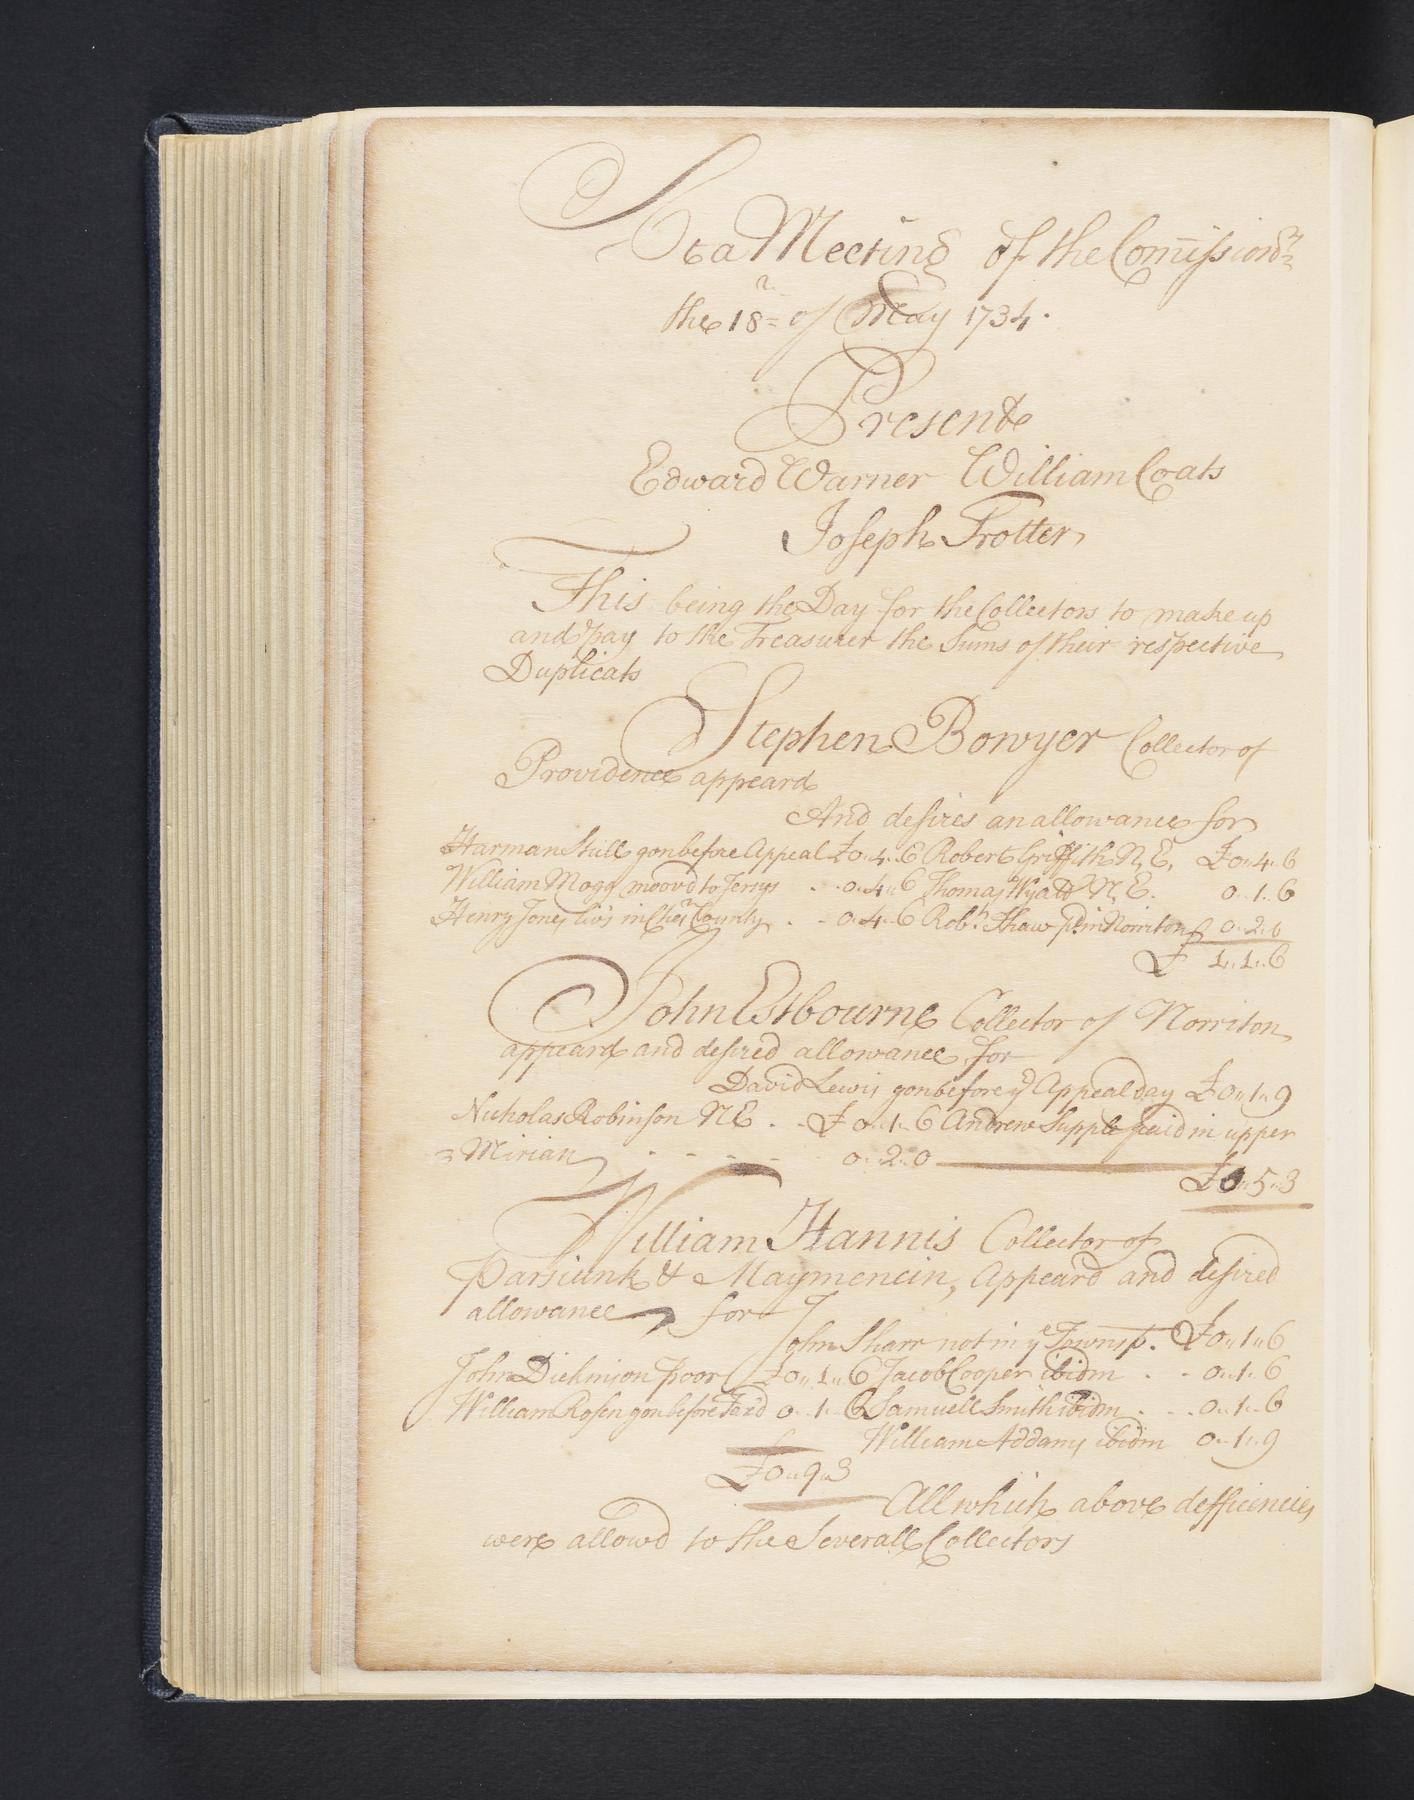 At a Meeting of the Com̅ission.rs
the 18.th of May 1734.
Present
Edward Warner William Coats
Joseph Trotter
This being the Day for the Collectors to make up
and pay to the Treasurer the Sums of their respective
Duplicats
Stephen Bowyer Collector of
Providence appeard
And desires an allowance for
Harman Still gon before Appeal £0..4..6 Robert Griffith N E. £0..4..6
William Mogg moovd to Jersys . . 0..4..6 Thomas Wyatt N E. 0..1..6
Henry Jones livs in Chesr County . . 0..4..6 Robt. Shaw pd in Norriton 0..2..0
£ 1..1..6
John Estbourne Collector of Norriton
appeard and desired allowance for
David Lewis gon before ye Appeal day £0..1..9
Nicholas Robinson N E . . £0..1..6 Andrew Supple paid in upper
Mirian . . . . 0..2..0
£0..5..3
William Hannis Collector of
Parsiunk & Maymencin, Appeard and desired
allowance for
John Sharr not in ye Townsp. £0..1..6
John Dickinson poor £0..1..6 Jacob Cooper ibidm . . 0..1..6
William Rosen gon before Laid 0..1..6 Samuell Smith ibidm . . . 0..1..6
William Addams ibidm 0..1..9
£0..9..3
All which above defficiencies
were allowd to the Severall Collectors